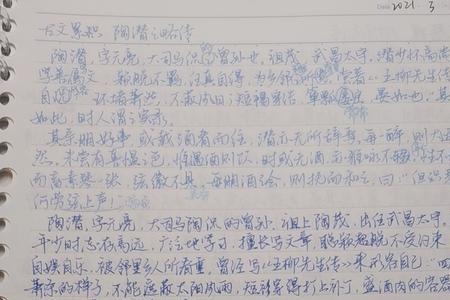 Date 2021. 3
古文累积 陶潜之略传
陶潜,字元亮,大司马侃之曾孙也。祖茂,武昌太守。潜少怀高尚
博学善属文,颖脱不羁,任真自得,为乡邻所 尝著《五柳先生传》
自况 环堵萧然,不蔽风日;短褐穿结,箪瓢屡空,晏如也。"其
如此,时人谓之实录。
其亲朋好事,或载酒肴而往,潜亦无所辞焉。每一醉,则大适
然。未尝有喜愠之色,惟遇酒则饮,时或无酒,亦雅咏不辍。性不
而畜素琴一张,弦徽不具,每朋酒之会,则抚而和之,曰:"但识
何劳弦上声!"
陶潜,字元亮,大司马陶侃的曾孙。祖上陶茂,出任武昌太守。
年少时志存高远,广泛地学习,擅长写文章,聪颖超脱不受约束
自娱自乐,被邻里乡人所看重,曾经写《五柳先生传》来形容自己:"四
萧条的样子,不能遮蔽太阳风雨,短褐穿得打上补丁,盛酒肉的容器